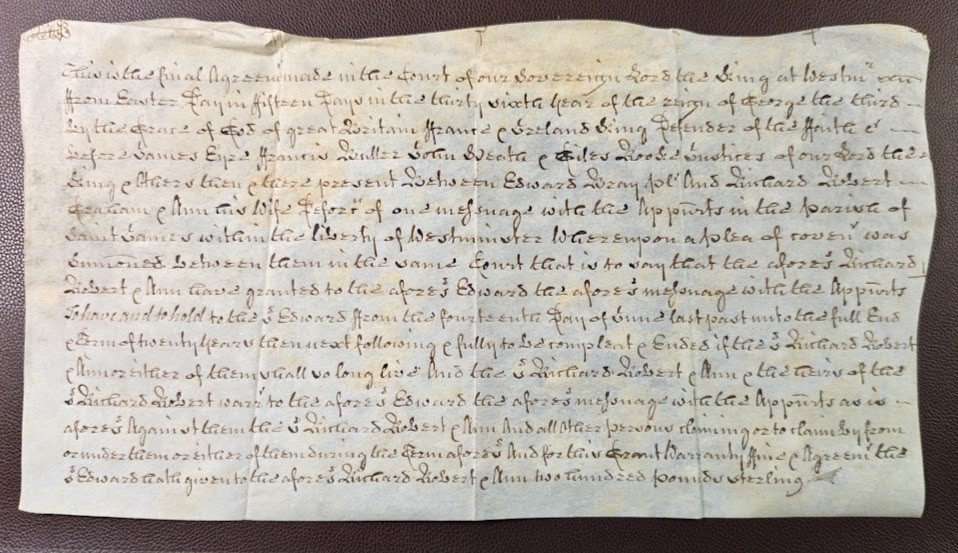 This is the final Agreem made in the Court of our Sovereign Lord the King at Westmr
ffrom Easter Day in fifteen Days in the thirty sixth Year of the reign of George the third
By the Grace of God of great Britain ffrance & Ireland King Defender of the ffaith &c
Before James Eyre ffrancis Buller John Heath & Giles Rooke Justices of our Lord the
King & Others then & there present Between Edward Wray plt And Richard Robert
Graham & Ann his Wife Deforts of one messuage with the Appurts in the parish of
Saint James within the liberty of Westminster Whereupon a plea of covent was
Sumoned between them in the same Court that is to say that the aforesd Richard
Robert & Ann have granted to the aforesd Edward the aforesd messuage with the Appurts
To have and to hold to the sd Edward ffrom the fourteenth Day of June last past unto the full End
& Term of twenty Years then next following & fully to be compleat & Ended if the sd Richard Robert
& Ann or either of them shall so long live And the sd Richard Robert & Ann & the heirs of the
sd Richard Robert warrt to the aforesd Edward the aforesd messuage with the Appurts as is
aforesd Against them the sd Richard Robert & Ann And all other persons claiming or to claim by from
or under them or either of them during the Term aforesd And for this Grant Warranty ffine & Agreemt the
sd Edward hath given to the aforesd Richard Robert & Ann two hundred pounds sterling